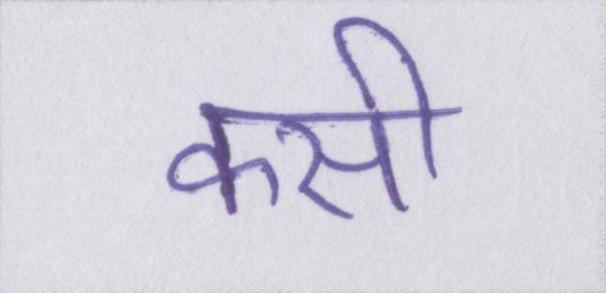 कसी